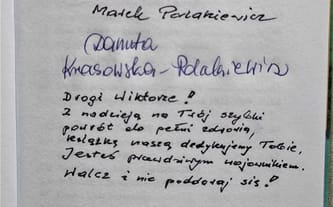 Marek Polakiewicz
Danuta
Krasowska-Polakiewicz
Drogi Wiktorze!
Z nadzieją na Twój szybki
powrót do pełni zdrowia,
książkę naszą dedykujemy Tobie.
Jesteś prawdziwym wojownikiem.
Walcz i nie poddawaj się!